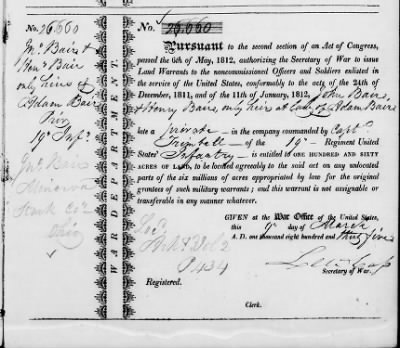 No. 26660
Jno. Bair &
Hen. Bair
only heirs of
Adam Bair
Priv
19th Infy
Jno. Bair
Minerva
Stark Co.
Ohio
WAR DEPARTMENT.
No. 26660
Pursuant to the second section of an Act of Congress,
passed the 6th of May, 1812, authorizing the Secretary of War to issue
Land Warrants to the noncommissioned Officers and Soldiers enlisted in
the service of the United States, conformably to the acts of the 24th of
December, 1811, and of the 11th of January, 1812, John Bair,
& Henry Bair, only heirs at law of Adam Bair
late a Private in the company commanded by Capt.
Trimbell of the 19th Regiment United
States' Infantry is entitled to ONE HUNDRED AND SIXTY
ACRES OF LAND, to be located agreeably to the said act on any unlocated
parts of the six millions of acres appropriated by law for the original
grantees of such military warrants; and this warrant is not assignable or
transferable in any manner whatever.
GIVEN at the War Office of the United States,
this 9th day of March
A. D. one thousand eight hundred and thirty five
Lew Cass
Secretary of War.
Registered.
Clerk.